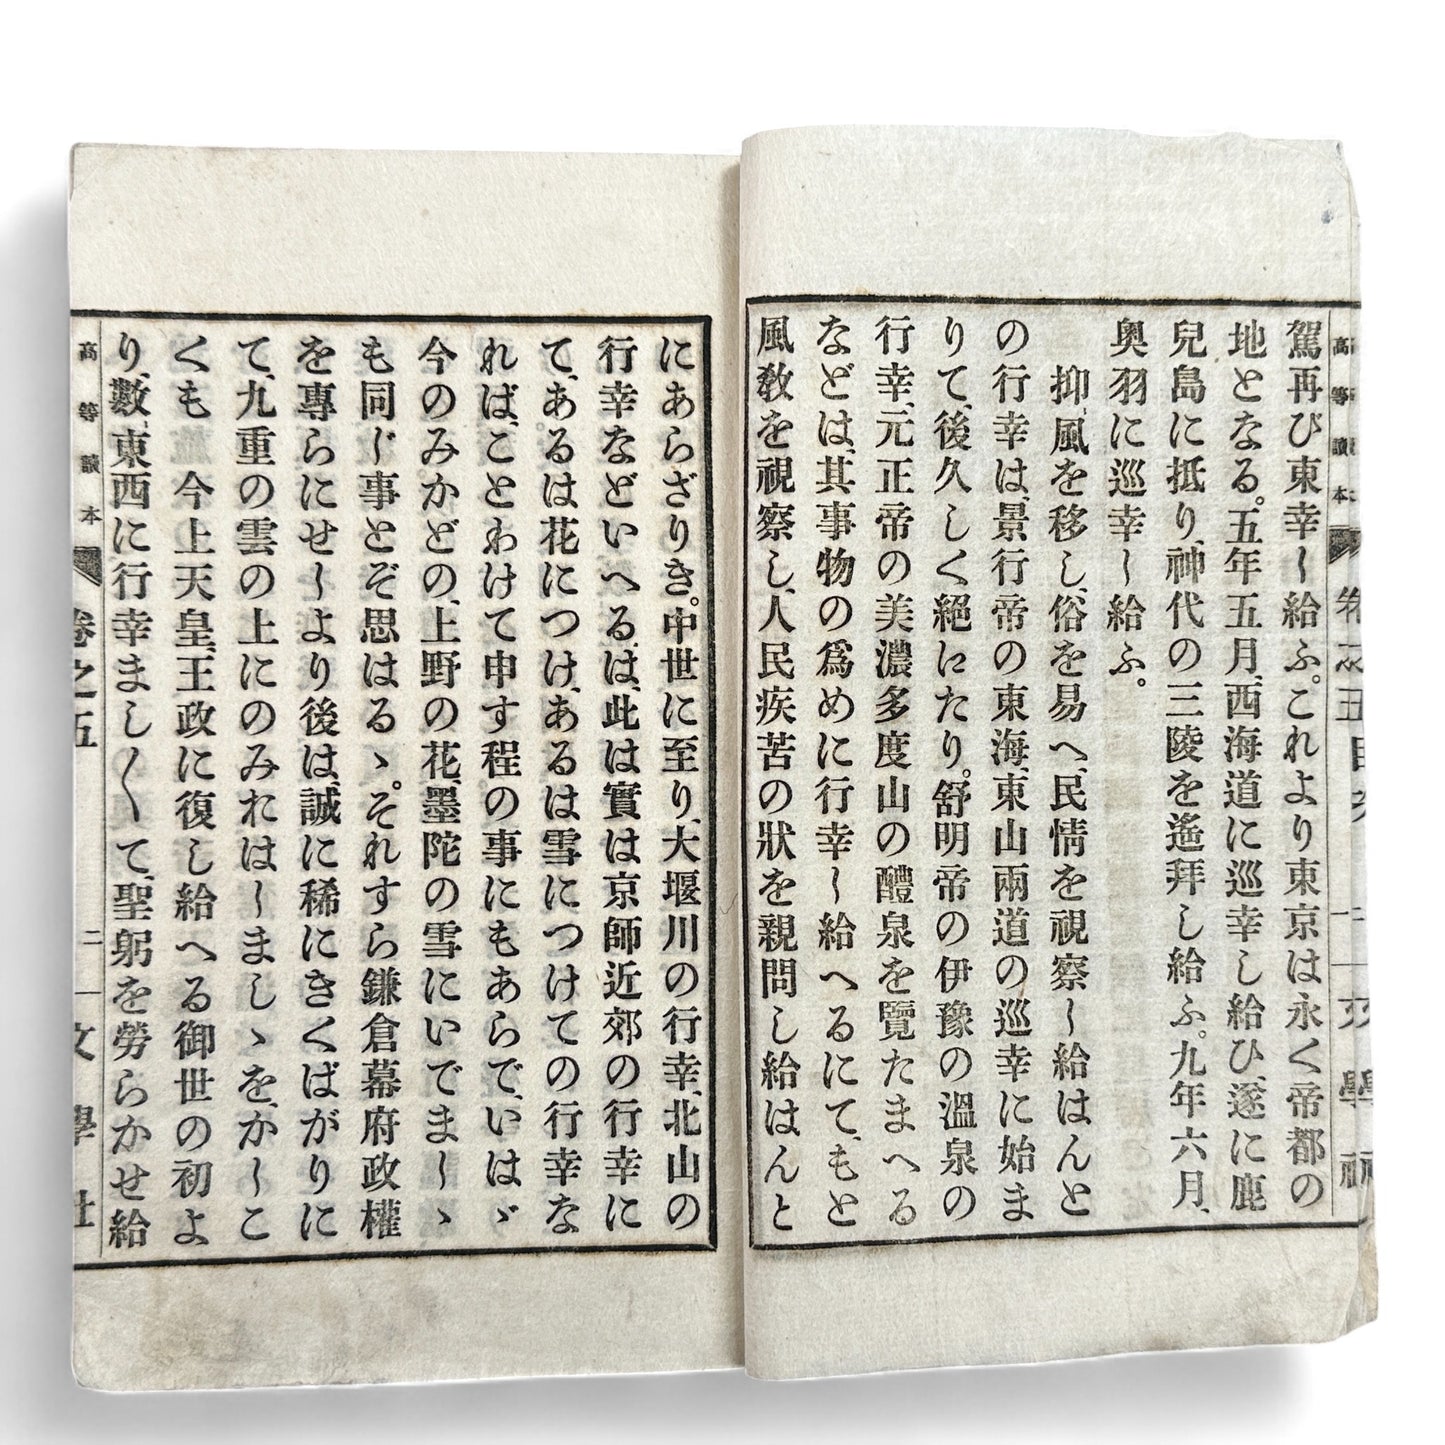 駕再び東幸し給ふ。これより東京は永く帝都の
地となる。五年五月、西海道に巡幸し給ひ、遂に鹿
兒島に抵り、神代の三陵を遙拜し給ふ。九年六月、
奥羽に巡幸し給ふ。
抑、風を移し、俗を易へ、民情を視察し給はんと
の行幸は、景行帝の東海、東山兩道の巡幸に始ま
りて、後久しく絕にたり。舒明帝の伊豫の溫泉の
行幸、元正帝の美濃多度山の醴泉を覽たまへる
などは、其事物の爲めに行幸し給へるにて、もと
風敎を視察し、人民疾苦の狀を親問し給はんと
にあらざりき。中世に至り、大堰川の行幸、北山の
行幸などいへるは、此は實は京師近郊の行幸に
て、あるは花につけ、あるは雪につけての行幸な
れば、ことわけて申す程の事にもあらで、いはゞ
今のみかどの、上野の花、墨陀の雪にいでましゝ
も同じ事とぞ思はるゝ。それすら鎌倉幕府政權
を專らにせしより後は、誠に稀にきくばがりに
て、九重の雲の上にのみれはしましゝを、かしこ
くも 今上天皇、王政に復し給へる御世の初よ
り、數、東西に行幸まし〱て、聖躬を勞らかせ給
高等讀本
卷之五
二
文學社